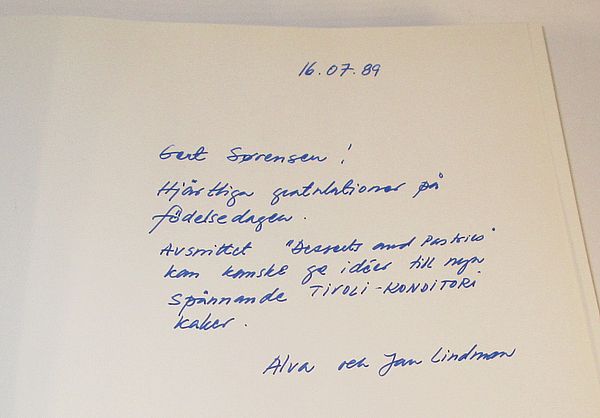 16.07.89
Gert Sørensen!
Hjärtliga gratulationer på
födelsedagen.
Avsnittet "Desserts and Pastries"
kan kanske ge idéer till nya
spännande TIVOLI-KONDITORI
kaker.
Alva och Jan Lindman